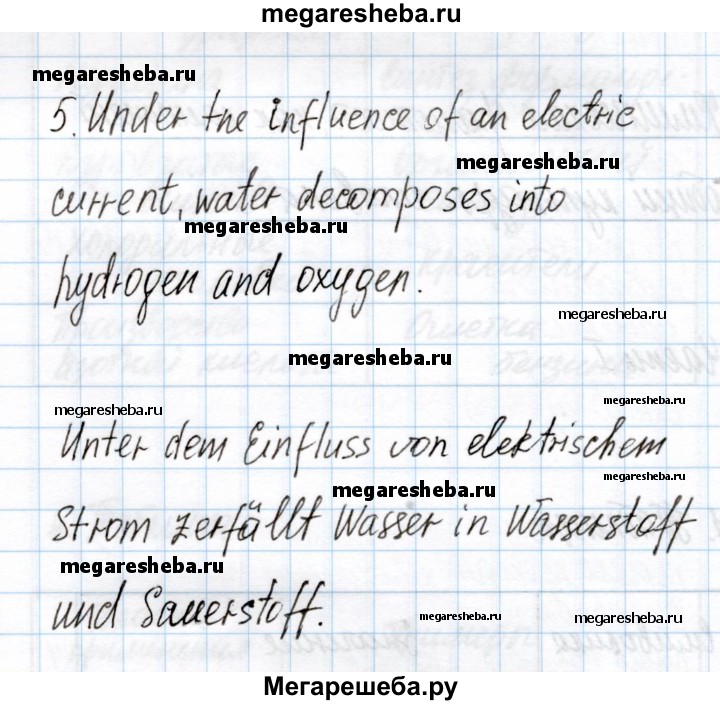 megaresheba.ru
megaresheba.ru
5. Under the influence of an electric
megaresheba.ru
current, water decomposes into
megaresheba.ru
hydrogen and oxygen.
megaresheba.ru
megaresheba.ru
megaresheba.ru
megaresheba.ru
Unter dem Einfluss von elektrischem
megaresheba.ru
megaresheba.ru
Strom zerfällt Wasser in Wasserstoff
megaresheba.ru
und Sauerstoff.
megaresheba.ru
megaresheba.ru
Мегарешеба.ру